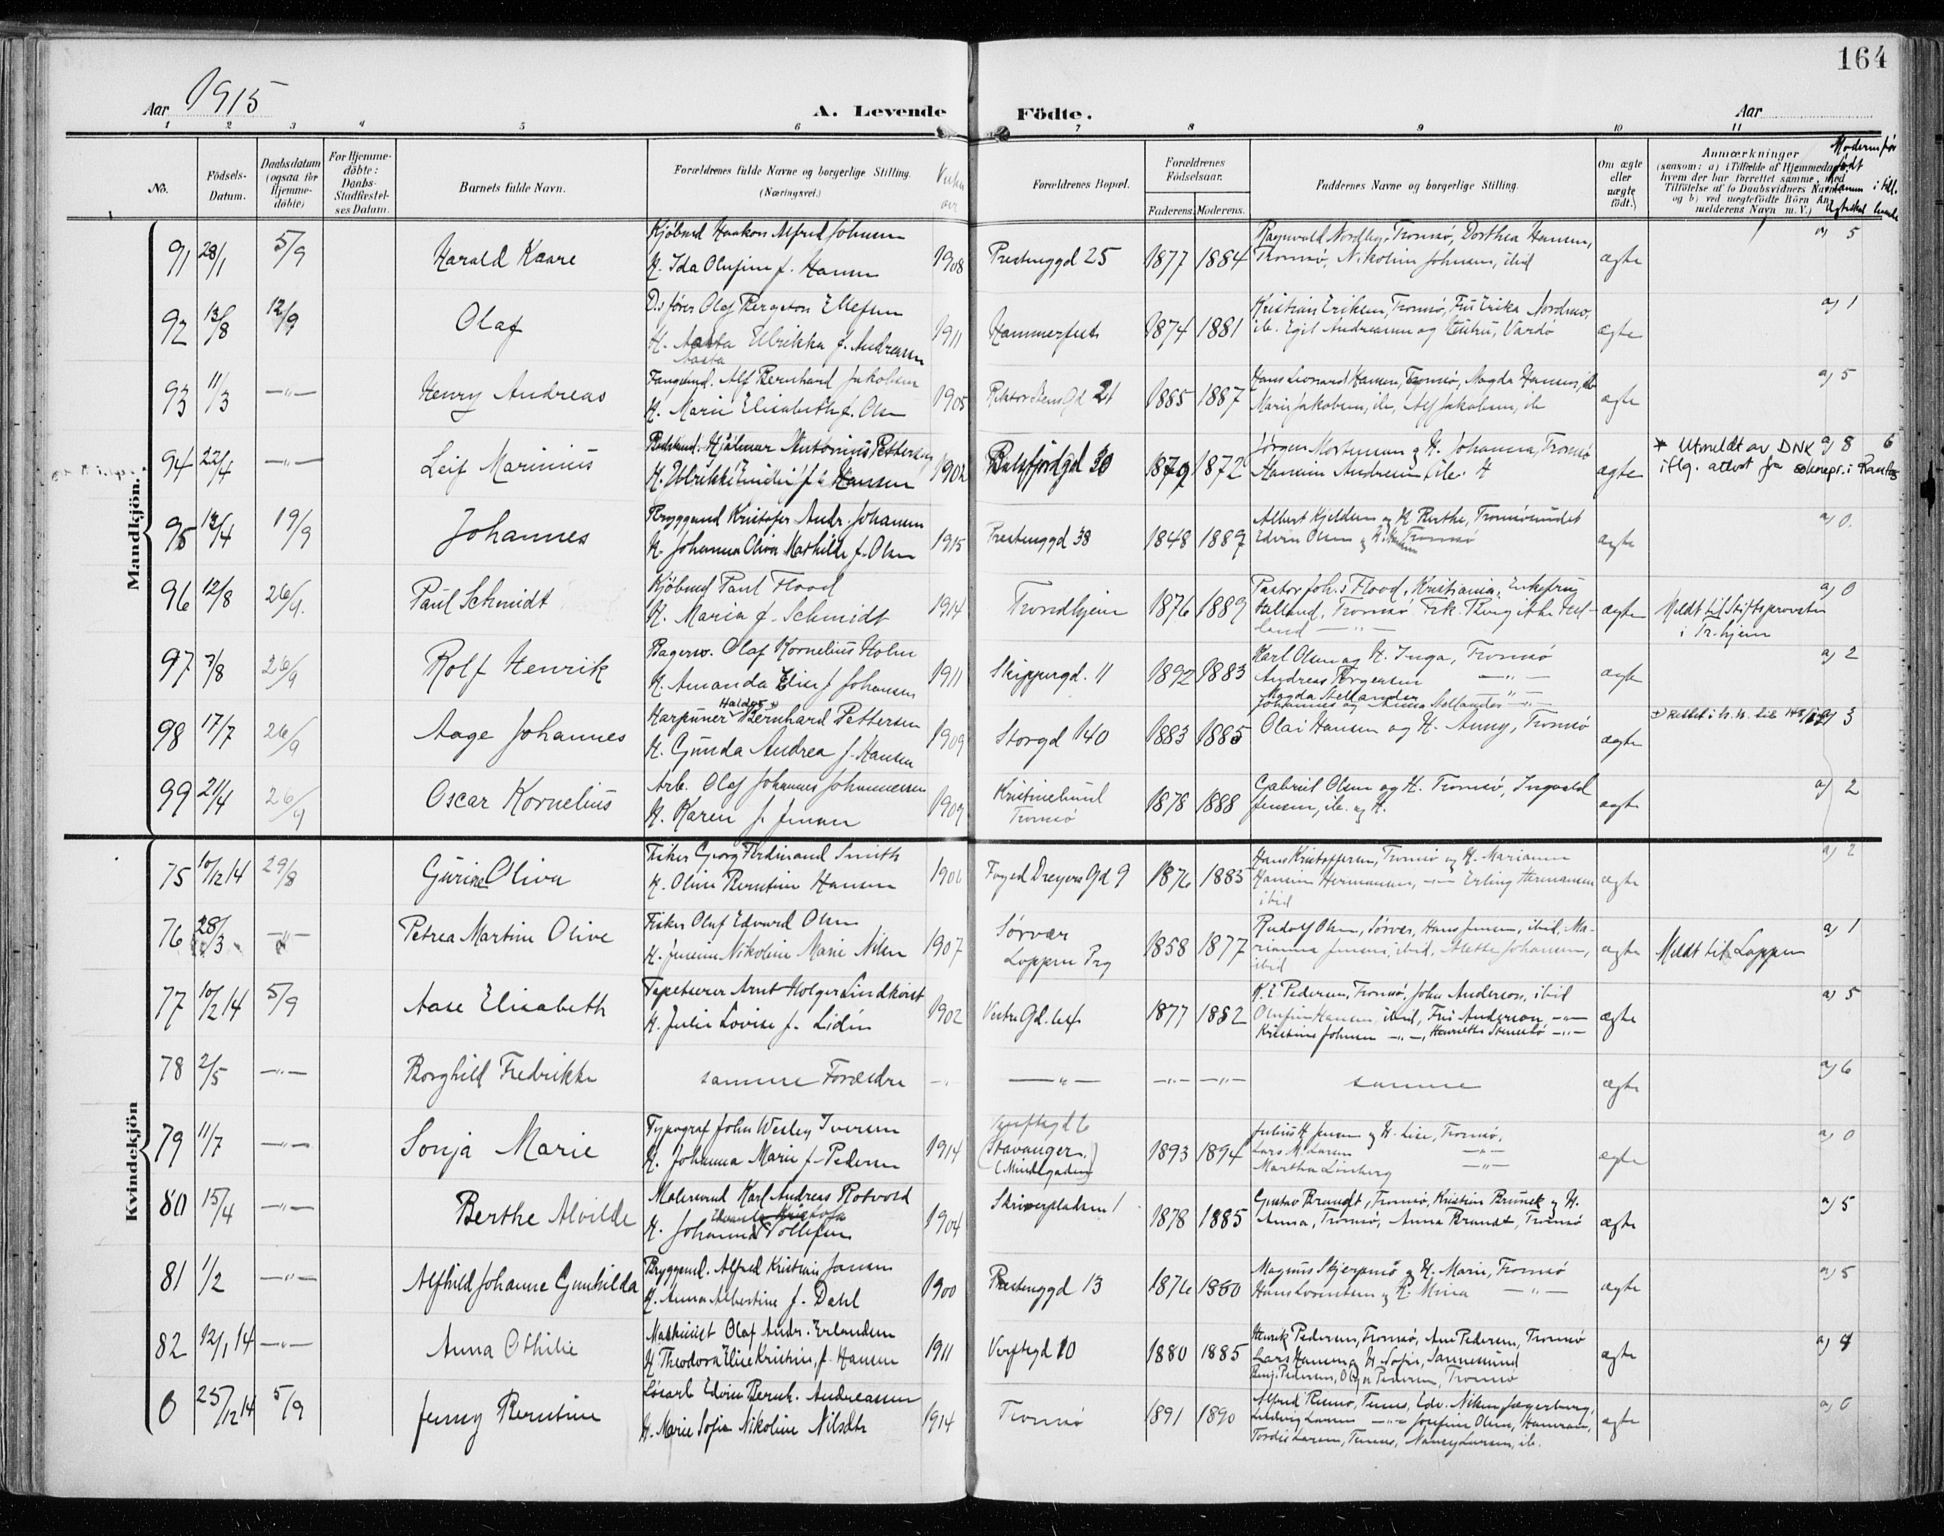 164
Aar 1915
A. Levende Födte.
Aar
1 2 3 4 5 6 7 8 9 10 11
No.
Födsels-Datum.
Daabsdatum (ogsaa for Hjemme-döbte)
For Hjemme-döbte: Daabs-Stadfæstel-ses Datum.
Barnets fulde Navn.
Forældrenes fulde Navne og borgerlige Stilling. (Næringsvei.)
Forældrenes Bopæl.
Forældrenes Födselsaar.
Faderens. Moderens.
Faddernes Navne og borgerlige Stilling.
Om ægte eller uægte födt.
Anmærkninger
Mandkjön.
91 28/1 5/9 Harald Kaare
Kjøbmd Haakon Alfred Johnsen
H. Ida Olufine f. Hansen
1908 Prestenggd 25 1877 1884
Ragnvald Nordby, Tromsø, Dorthea Hansen,
Tromsø, Nikoline Johnsen, ibid
ægte a) 5
92 13/8 12/9 Olaf
Olaf Bergeton Ellefsen
H. Aasta Ulrikka f. Andresen
Aasta
1911 Hammerfest 1874 1881
Kristian Eriksen, Tromsø, Fru Erika Nordmo,
ib. Egil Andreassen og Hustru, Vardø
ægte a) 1
93 11/3 —"— Henry Andreas
Alf Bernhard Jakobsen
H. Marie Elisabeth f. Olsen
1905 Rektor Steens Gd 21 1885 1887
Hans Leonard Hansen, Tromsø, Magda Hansen, ib
Marie Jakobsen, ib, Alf Jakobsen, ib
ægte a) 5
94 22/4 —"— Leif Marinius
Hjalmar Antonius Pettersen
H. Ulrikke Emilie f. Hansen
1902 Balsfjordgd 30 1879 1872
Jørgen Mortensen og H. Johanna, Tromsø
Hansine Andresen, ib. H
ægte * Utmeldt av DNK a) 8 6
iflg. attest fra soknepr. i
95 13/4 19/9 Johannes
Bryggemd Kristofer Andr. Johansen
H. Johanna Oliva Mathilde f. Olsen
1915 Prestenggd 38 1848 1889
Albert Kjeldsen og H. Berthe, Tromsøsundet
Edvin Olsen og H. Tromsø
ægte a) 0.
96 12/8 26/9. Paul Schmidt
Kjøbmd Paul Flood
H. Maria f. Schmidt
1914 Trondhjem 1876 1889
Pastor Johs Flood, Kristiania, Enkefru
Halland, Tromsø Frk.
land —"—
ægte Meldt til Stiftsprovsten a) 0
i Tr.hjem
97 7/8 26/9 Rolf Henrik
Bagersv. Olaf Kornelius Holm
H. Amanda Elise f Johansen
1911 Skippergd. 11 1892 1883
Karl Olsen og H. Inga, Tromsø
Andreas Torgersen —"—
Magda Stellander
Johannes og Anna Stellander —"—
ægte a) 2
98 17/7 26/9 Aage Johannes
Harpuner Bernhard Pettersen
H. Gunda Andrea f. Hansen
1909 Storgd 140 1883 1885
Olai Hansen og H. Anny, Tromsø
ægte a) 3
99 21/4 26/9 Oscar Kornelius
Arb. Olaf Johannes Johannessen
H. Karen f. Jensen
1909 Kristinelund
Tromsø
1878 1888
Gabriel Olsen og H. Tromsø, Ingvald
Jensen, ib. og H.
ægte a) 2
Kvindekjön
75 10/12 14 29/8 Gurine Oliva
Fisker Georg Ferdinand Smith
H. Oline Berntine Hansen
1906 Foged Dreyers Gd 9 1876 1883
Hans Kristoffersen, Tromsø og H. Marianne
Hansine Hermansen, —"— Erling Hermansen
ibid
ægte a) 2
76 28/3 —"— Petrea Martine Olive
Fisker Oluf Edvard Olsen
H. Jensine Nikoline Marie Nilsen
1907 Sørvær
Loppen Prg
1858 1877
Rudolf Olsen, Sørvær, Hans Jensen, ibid, Ma-
rianna Jensen, ibid, Mette Johansen,
ibid
ægte Meldt til Loppen a) 1
77 10/12 14 5/9 Aase Elisabeth
Tapetserer Arnt Holger Lindkvist
H. Julie Lovise f. Lidin
1902 Vestre Gd. 1877 1882
K. E Pedersen, Tromsø, John Anderson, ibid
Olufine Hansen, ibid, Fru Anderson —"—
Kristine Johnsen —"—, Henriette —"—
ægte a) 5
78 2/5 —"— Borghild Fredrikke
samme Forældre
—"— —"— —"— —"— samme
ægte a) 6
79 11/7 —"— Sonja Marie
Typograf John Wesley Iversen
H. Johanna Marie f. Pedersen
1914 Verftsgd 6
(Stavanger.
1893 1894
Julius H Jensen og H. Lise, Tromsø,
Lars M. Larsen —"—
Martha Limberg —"—
ægte a) 0
80 15/4 —"— Berthe Alvilde
Malersvend Karl Andreas Rotvold
H. Johanna Tollefsen
1904 Skriverpladsen 1 1878 1885
Gustav Brandt, Tromsø, Kristian Brunck og H.
Anna, Tromsø, Anna Brandt, Tromsø
ægte a) 5
81 1/2 —"— Alfhild Johanne Gunhilda
Bryggemd. Alfred Kristian Jansen
H. Anna Albertine f. Dahl
1900 Prestenggd 13 1876 1880
Magnus Skjerpmo og H. Marie, Tromsø
Hans Lorentsen og H. Mina —"—
ægte a) 5
82 12/1 14 —"— Anna Othilie
Maskinist Olaf Andr. Erlandsen
H. Theodora Elise Kristine, f. Hansen
1911 Verftsgd 10 1880 1885
Henrik Pedersen, Tromsø, Ane Pedersen, Tromsø
Lars Hansen og H. Sofie, Sannesund
Pedersen, Pedersen, Tromsø
ægte a) 4
0 25/12 14 5/9 Jenny Berntine
Løsarb Edvin Bernh. Andreassen
H. Marie Sofie Nikoline Nilsdtr
1914 Tromsø 1891 1890
Alfred Edv. Nilsen Jægerberg,
Ludvig Larsen —"— Josefine Olsen,
Tordis Larsen, Nancy Larsen, ib.
ægte a) 0